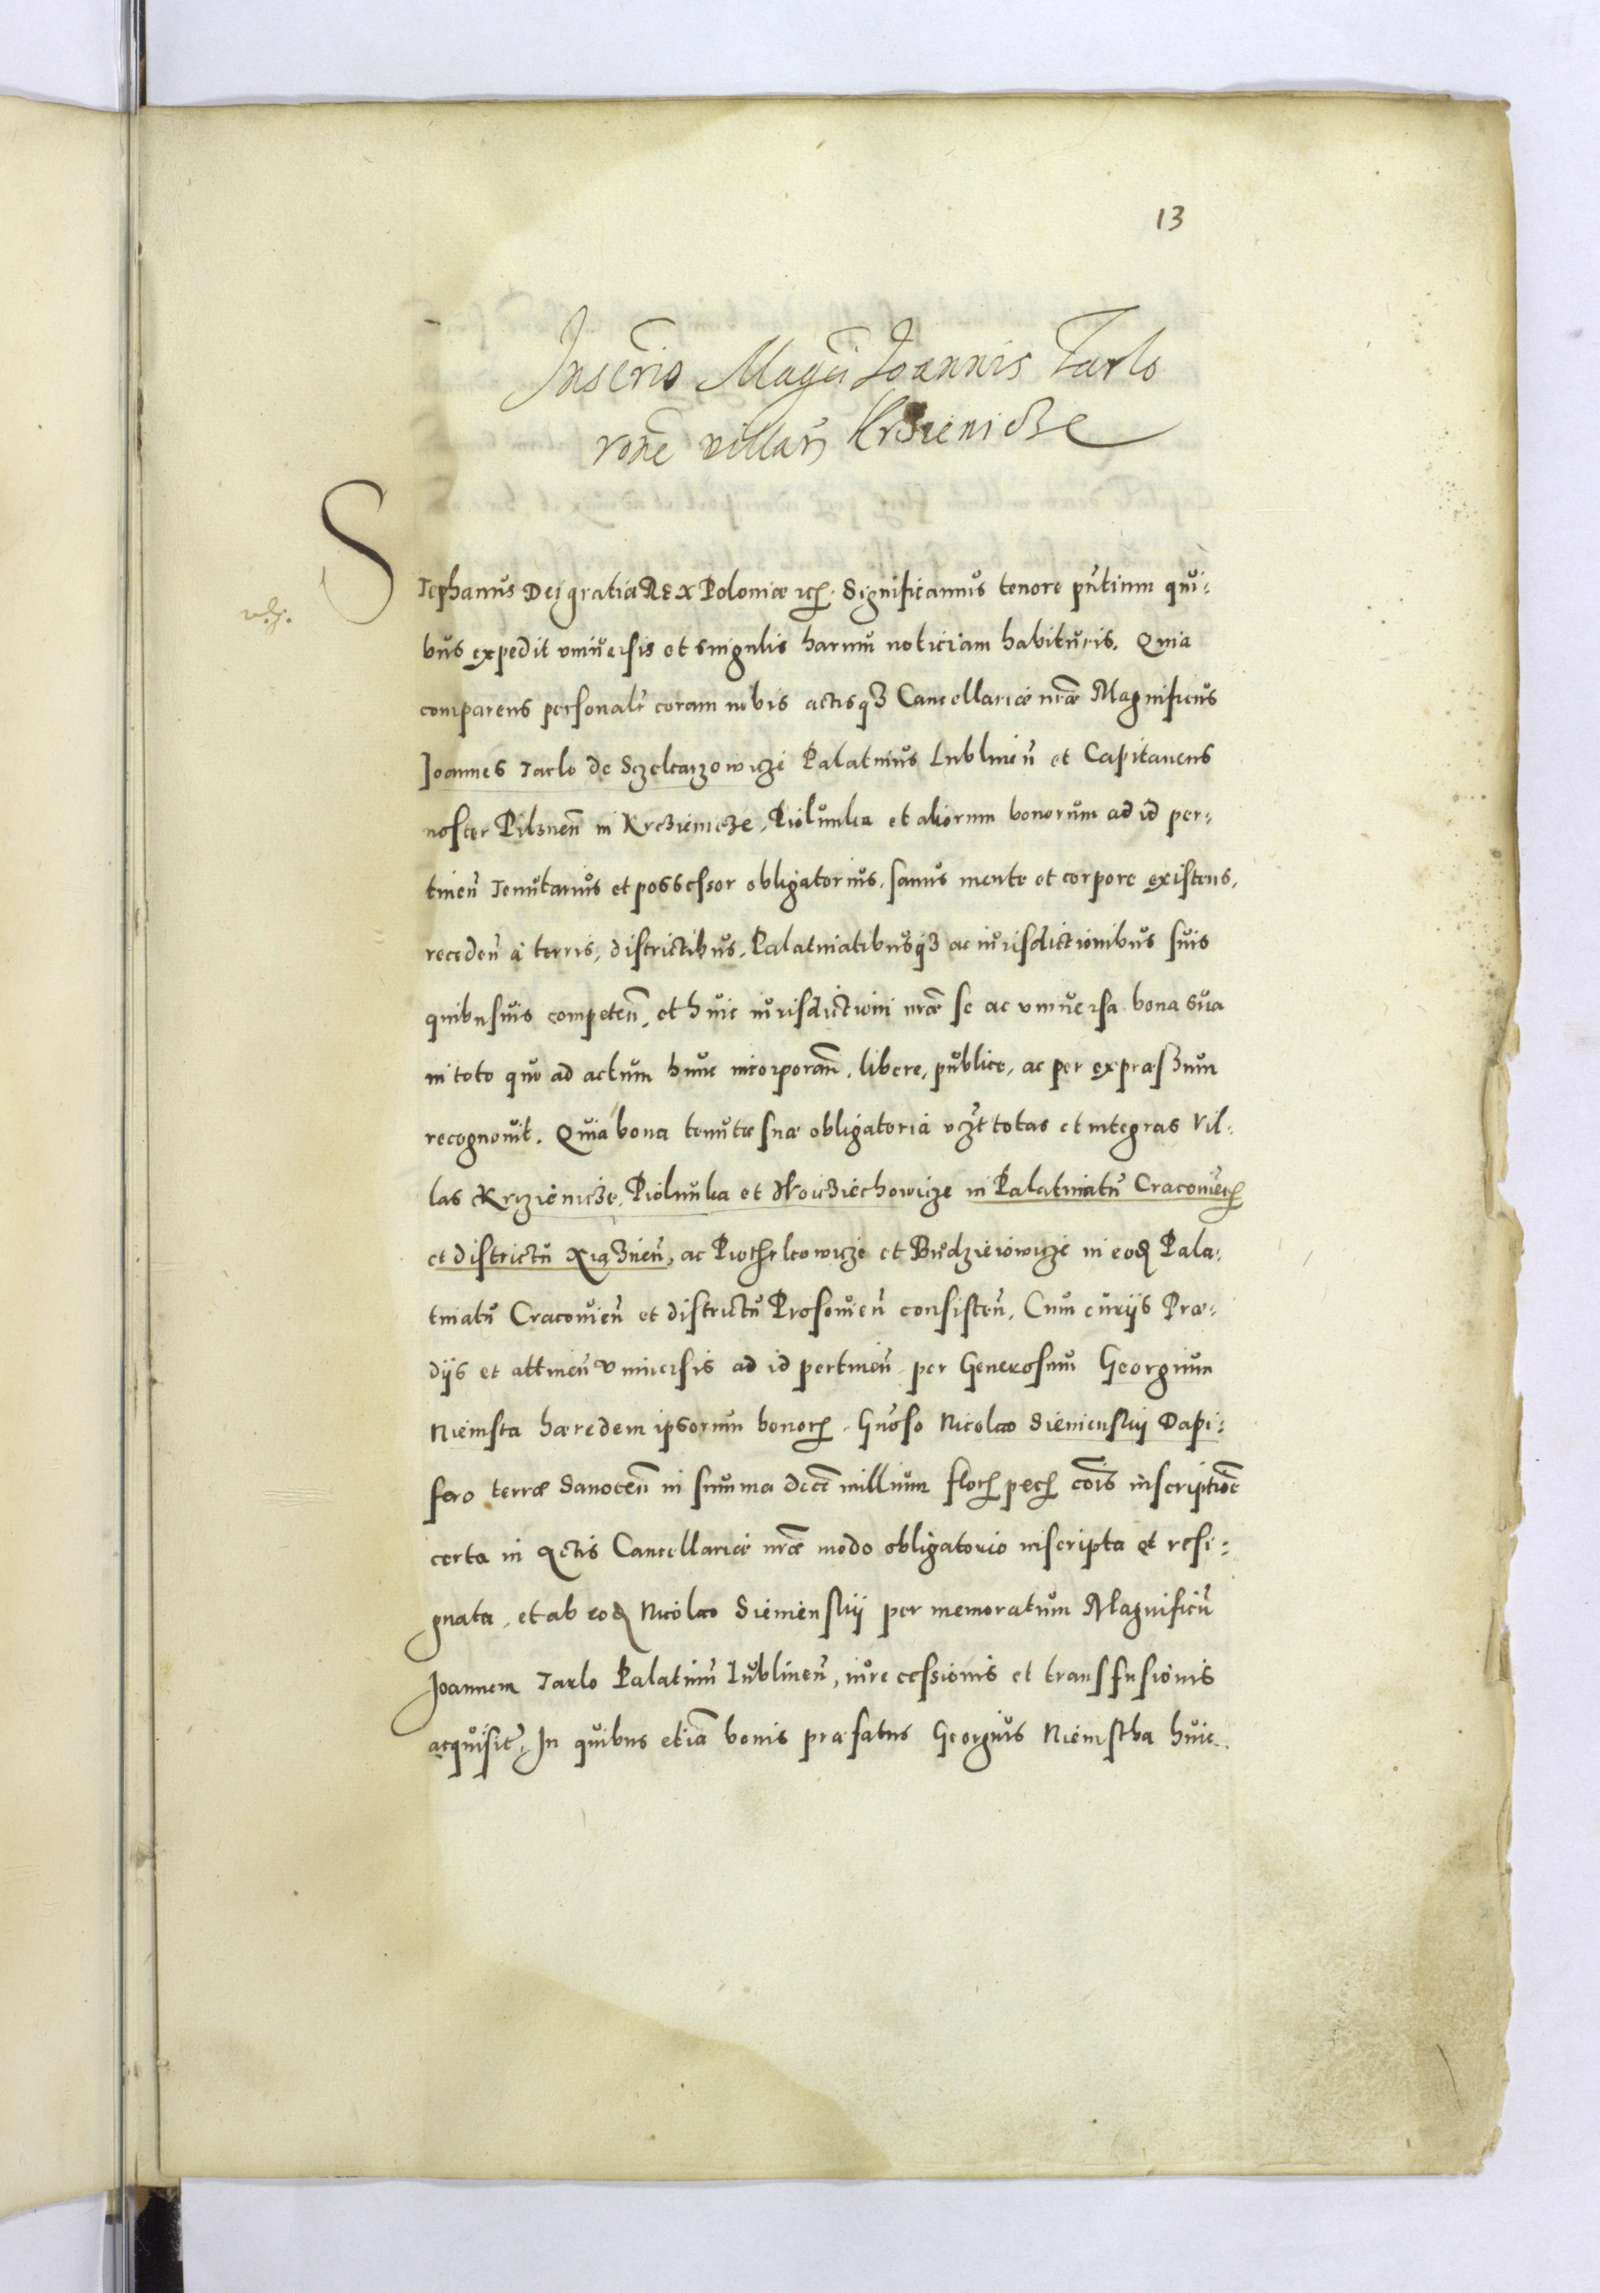 13
Inscrio Magci Joannis Tarlo
rone villar Krzenicze
Stephanus Dei gratia Rex Poloniæ etc. Significamus tenore pntium qui-
vdz.
bus expedit vniuersis et singulis harum noticiam habituris. Quia
comparens personalr coram nobis actisq3 Cancellariæ nræ Magnificus
Joannes Tarlo de Sczekarzowicze Palatinus Lublinen et Capitaneus
noster Pilznen in Krczienicze, Piolunka et aliorum bonorum ad id per-
tinen Tenutarius et possessor obligatorius, sanus mente et corpore existens,
receden à terris, districtibus, Palatinatibusq3 ac iurisdictionibus suis
quibusuis competen, et huic iurisdictioni nræ se ac vniuersa bona sua
in toto quo ad actum hunc incorporan, libere, publice, ac per expræssum
recognouit. Quia bona tenutæ suæ obligatoria vzt totas et integras Vil-
las Krzięnicze, Piolunka et Woicziechowicze in Palatinatu Cracouien
et districtu Xiąznen, ac Piothrkowicze et Budzieiowicze in eod Pala-
tinatu Cracouien et districtu Prosouien consisten, Cum curijs Præ-
dijs et attinen vniuersis ad id pertinen per Generosum Georgium
Niemsta hæredem ipsorum bonor. Gnoso Nicolao Sienienskij Dapi-
fero terræ Sanocen in summa dece millium flor pec cois inscriptioe
certa in actis Cancellariæ nræ modo obligatorio inscripta et resi-
gnata, et ab eod Nicolao Sienienskij per memoratum Magnificu
Joannem Tarlo Palatinu Lublinen, iure cessionis et transfusionis
acquisit, In quibus etia bonis præfatus Georgius Niemstha huic